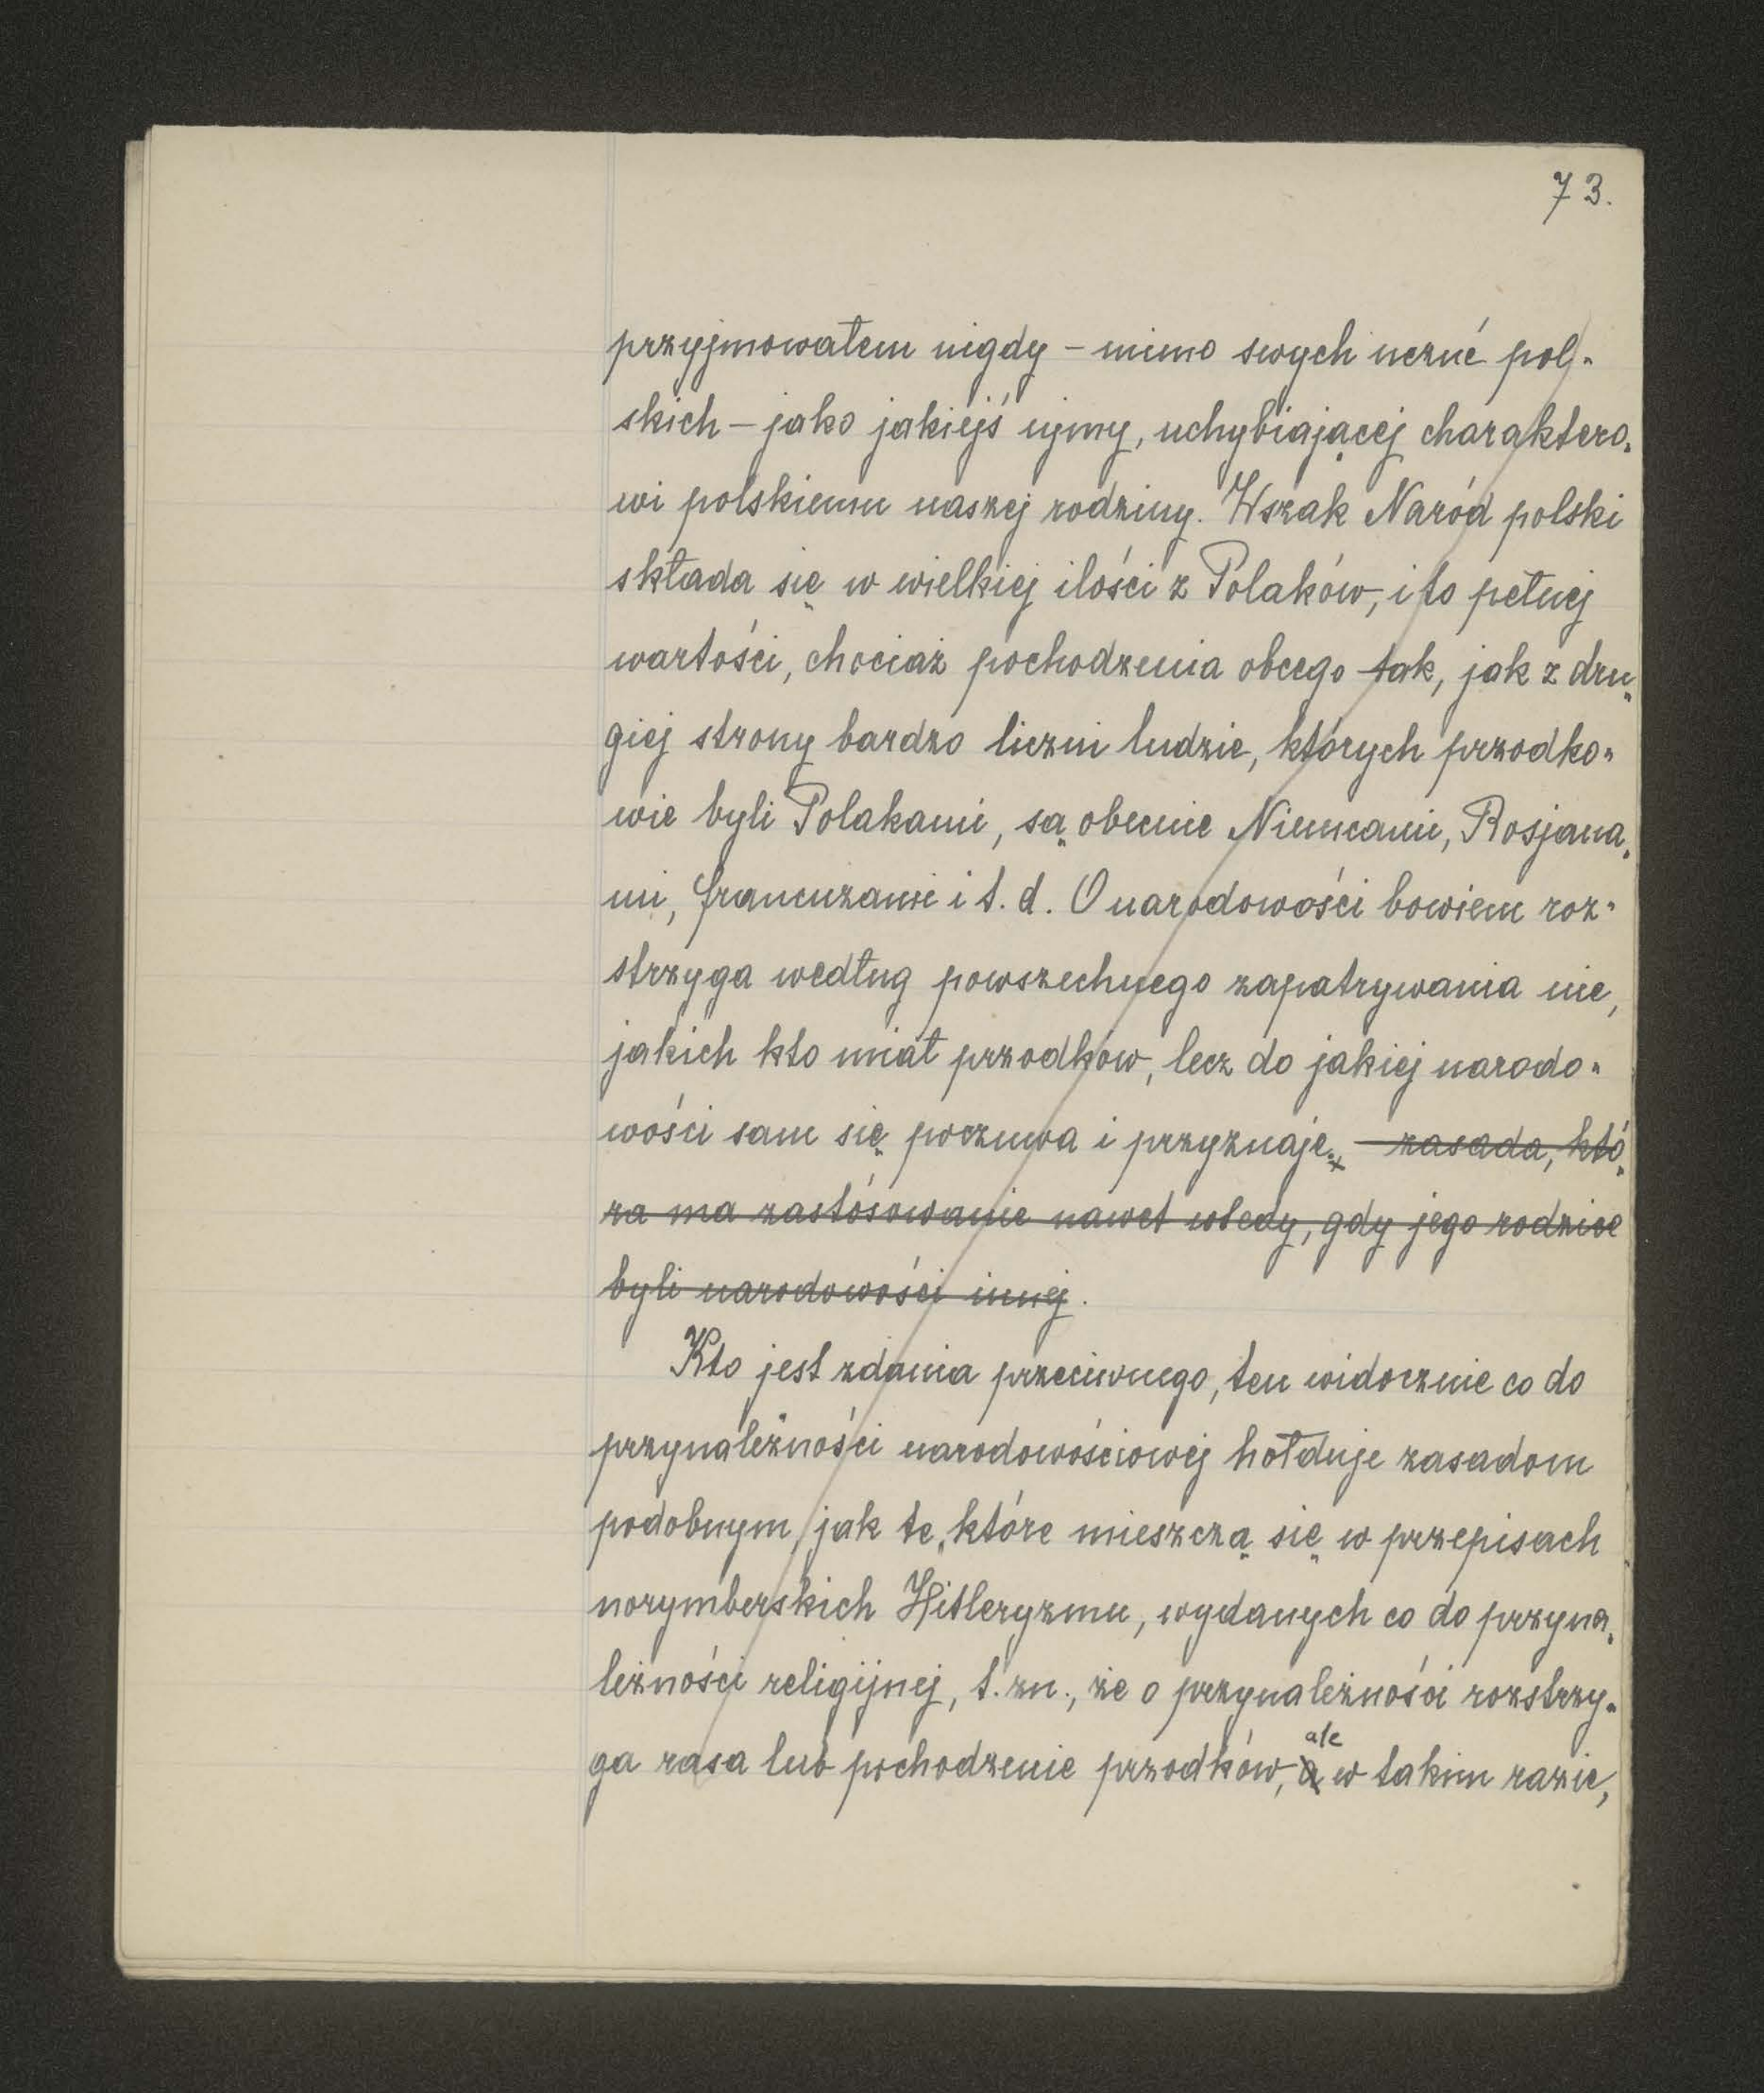 73.
przyjmowałem nigdy – mimo swych uczuć pol-
skich – jako jakiejś ujmy, uchybiającej charaktero-
wi polskiemu naszej rodziny. Wszak Naród polski
składa się w wielkiej ilości z Polaków, i to pełnej
wartości, chociaż pochodzenia obcego tak, jak z dru-
giej strony bardzo liczni ludzie, których przodko-
wie byli Polakami, są obecnie Niemcami, Rosjana-
mi, francuzami i t. d. O narodowości bowiem roz-
strzyga według powszechnego zapatrywania nie,
jakich kto miał przodków, lecz do jakiej narodo-
wości sam się poczuwa i przyznaje. – zasada, któ-
ra ma zastósowanie nawet wtedy, gdy jego rodzice
byli narodowości innej.
Kto jest zdania przeciwnego, ten widocznie co do
przynależności narodowościowej hołduje zasadom
podobnym, jak te, które mieszczą się w przepisach
norymberskich Hitleryzmu, wydanych co do przyna-
leżności religijnej, t. zn., że o przynależności rozstrzy-
ga rasa lub pochodzenie przodków, a ale w takim razie,